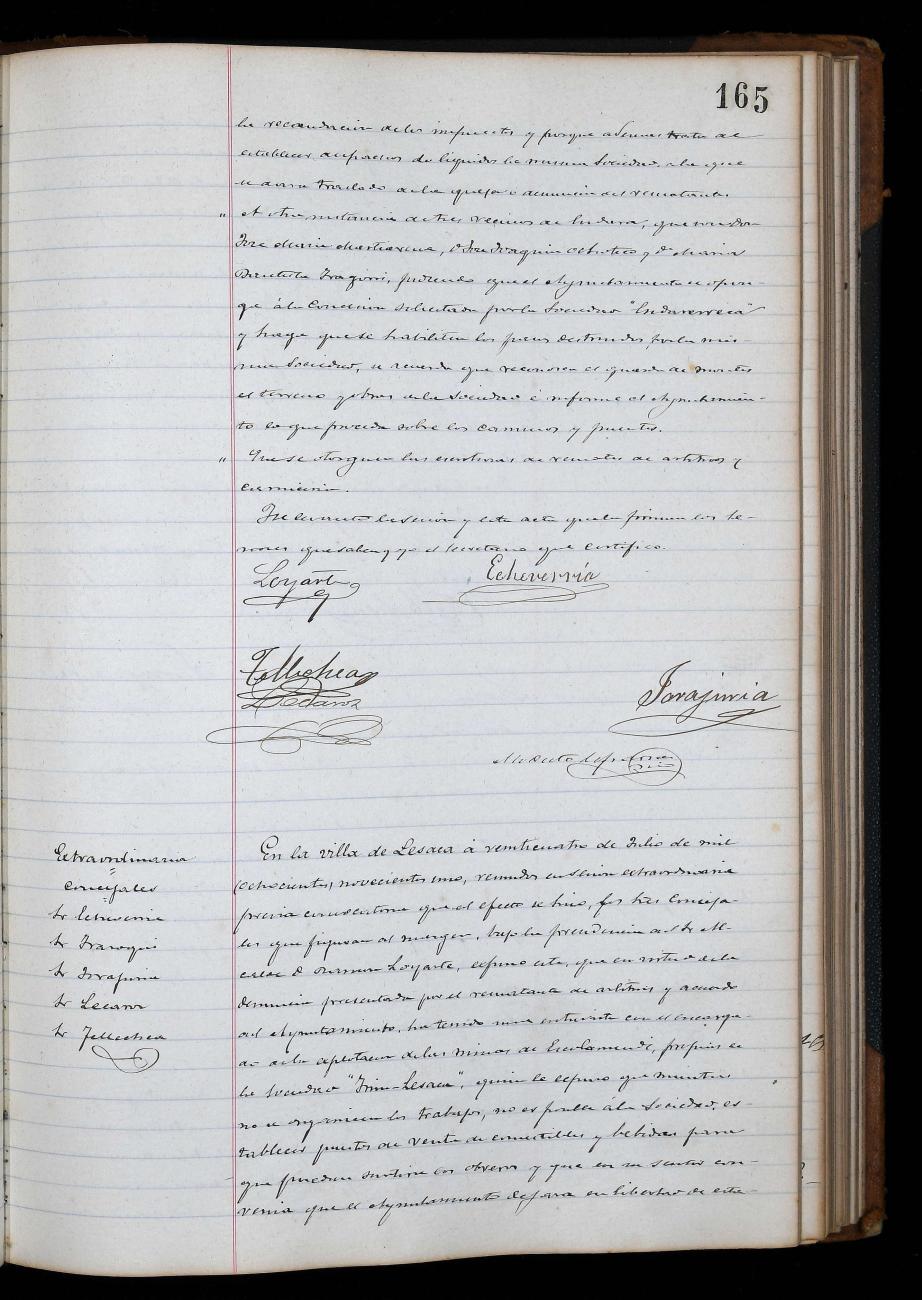 165
la recaudacion de los impuestos y porque ademas trata de
establecer depositos de liquidos la misma Sociedad, a la que
se dará traslado de la queja o denuncia del rematante.
" A otra instancia de tres vecinos de Endara, que son Don
José Maria Martiarena, D. José Joaquin y Dª Maria
Bautista Iragorri, pidiendo que el Ayuntamiento se opon-
ga á la Concesion solicitada por la Sociedad "Endarerreca"
y haga que se habiliten los pasos destruidos por la mis-
ma Sociedad, se acuerda que reconozca el guarda de montes
el terreno y obras de la Sociedad é informe al Ayuntamien-
to lo que proceda sobre los caminos y puentes.
" Que se otorguen las escrituras de remates de arbitrios y
carniceria.
Se levantó la sesion y esta acta que la firman los se-
ñores que saben y yo el Secretario que certifico.
Loyarte Echeverría
Tellechea
Lecaroz
Irrajuria
Modesto
Extraordinaria
Concejales
Sr Echeverria
Sr Irazoqui
Sr Irrajuria
Sr Lecaroz
Sr Tellechea
En la villa de Lesaca á veinticuatro de Julio de mil
(ochocientos) novecientos uno, reunidos en sesion extraordinaria
previa convocatoria que al efecto se hizo, los tres Conceja-
les que figuran al margen, bajo la presidencia del Sr Al-
calde D. Ramon Loyarte, expuso este, que en virtud de la
denuncia presentada por el rematante de arbitrios y acuerdo
del Ayuntamiento, ha tenido una entrevista con el encarga-
do de la explotacion de las minas de Escolamendi, propias de
la Sociedad "Irun-Lesaca", quien le expuso que mientras
no se organicen los trabajos, no es posible á la Sociedad, es-
tablecer puestos de venta de comestibles y bebidas para
que puedan surtirse los obreros y que en su sentir con-
venia que el Ayuntamiento dejara en libertad de esta-